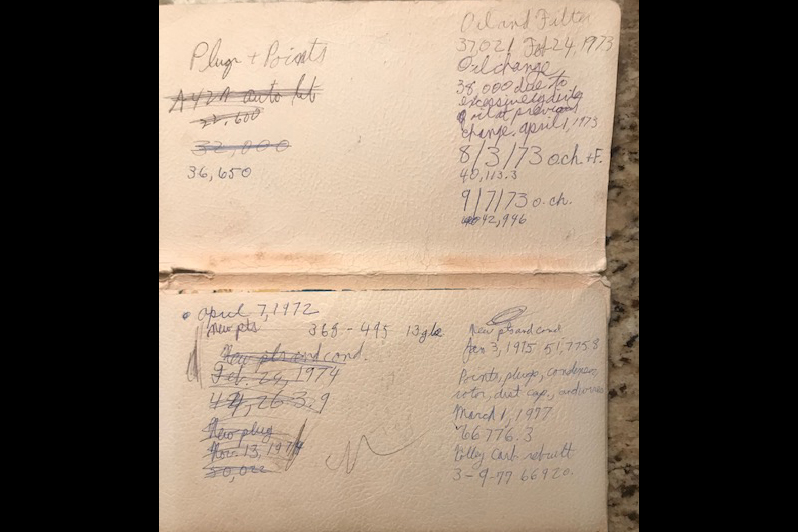 Plugs + Points
A42N auto lite
22,600
32,000
36,650
Oil and Filter
37021 Feb 24, 1973
Oil change
38,000 due to
excessively dirty
oil at previous
change. april 1, 1973
8/3/73 o.ch + F.
40,113.3
9/7/73 o.ch.
42,946
april 7, 1972
New pts 368 - 495 13gls
New pts and cond.
Feb. 20, 1974
44,263.9
New plug
Nov. 13, 1974
50,022
New pts and cond
Jan 3, 1975 51,775.8
Points, plugs, condenser,
rotor, dist cap, and wires
March 1, 1977
66776.3
Holley Carb rebuilt
3-9-77 66920.